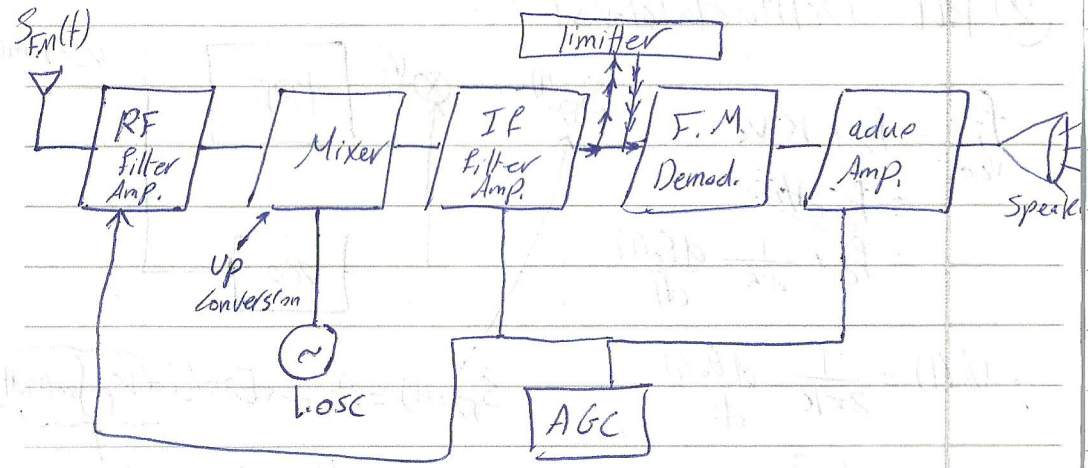 S_FM(t)
limitter
RF
filter
Amp.
Mixer
IF
filter
Amp.
F.M
Demod.
aduo
Amp.
Speak
Up
Conversion
~
L.OSC
AGC